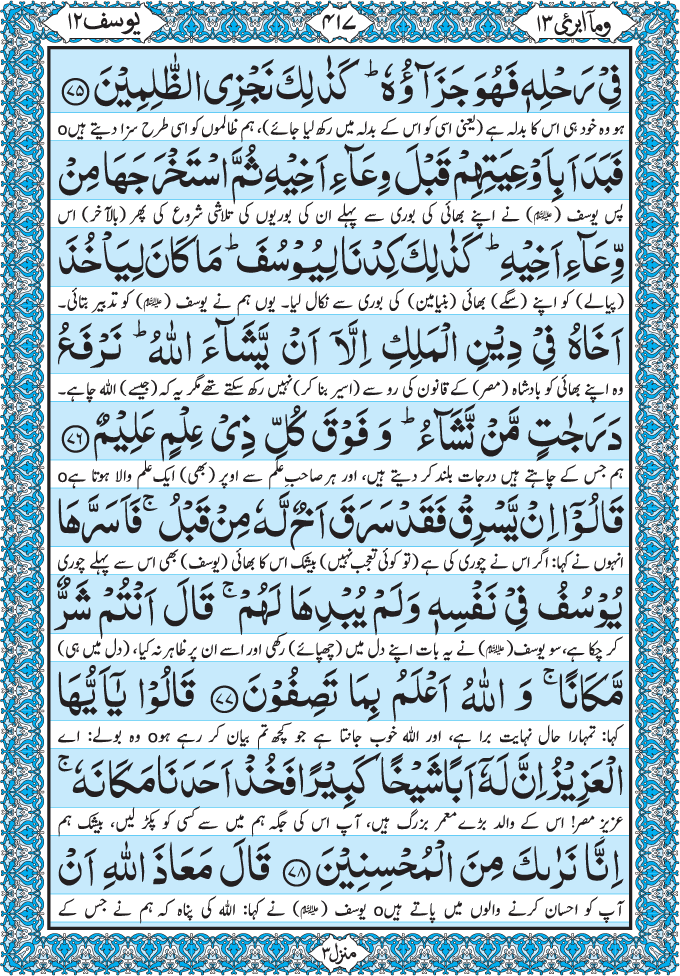 ومآ ابرئ ١٣ ٤١٧ يوسف ١٢
فِیْ رَحْلِهٖ فَهُوَ جَزَآؤُهٗ ؕ كَذٰلِكَ نَجْزِی الظّٰلِمِیْنَ ﴿۷۵﴾
ہو وہ خود ہی اس کا بدلہ ہے (یعنی اسی کو اس کے بدلہ میں رکھ لیا جائے)، ہم ظالموں کو اسی طرح سزا دیتے ہیںo
فَبَدَاَ بِاَوْعِیَتِهِمْ قَبْلَ وِعَآءِ اَخِیْهِ ثُمَّ اسْتَخْرَجَهَا مِنْ
پس یوسف (علیہ السلام) نے اپنے بھائی کی بوری سے پہلے ان کی بوریوں کی تلاشی شروع کی پھر (بالآخر) اس
وِّعَآءِ اَخِیْهِ ؕ كَذٰلِكَ كِدْنَا لِیُوْسُفَ ؕ مَا كَانَ لِیَاْخُذَ
(پیالے) کو اپنے (سگے) بھائی (بنیامین) کی بوری سے نکال لیا۔ یوں ہم نے یوسف (علیہ السلام) کو تدبیر بتائی۔
اَخَاهُ فِیْ دِیْنِ الْمَلِكِ اِلَّاۤ اَنْ یَّشَآءَ اللّٰهُ ؕ نَرْفَعُ
وہ اپنے بھائی کو بادشاہ (مصر) کے قانون کی رو سے (اسیر بنا کر) نہیں رکھ سکتے تھے مگر یہ کہ (جیسے) اللہ چاہے۔
دَرَجٰتٍ مَّنْ نَّشَآءُ ؕ وَ فَوْقَ كُلِّ ذِیْ عِلْمٍ عَلِیْمٌ ﴿۷۶﴾
ہم جس کے چاہتے ہیں درجات بلند کر دیتے ہیں، اور ہر صاحبِ علم سے اوپر (بھی) ایک علم والا ہوتا ہےo
قَالُوْۤا اِنْ یَّسْرِقْ فَقَدْ سَرَقَ اَخٌ لَّهٗ مِنْ قَبْلُ ۚ فَاَسَرَّهَا
انہوں نے کہا: اگر اس نے چوری کی ہے (تو کوئی تعجب نہیں) بیشک اس کا بھائی (یوسف) بھی اس سے پہلے چوری
یُوْسُفُ فِیْ نَفْسِهٖ وَلَمْ یُبْدِهَا لَهُمْ ۚ قَالَ اَنْتُمْ شَرٌّ
کر چکا ہے، سو یوسف (علیہ السلام) نے یہ بات اپنے دل میں (چھپائے) رکھی اور اسے ان پر ظاہر نہ کیا، (دل میں ہی)
مَّكَانًا ۚ وَ اللّٰهُ اَعْلَمُ بِمَا تَصِفُوْنَ ﴿۷۷﴾ قَالُوْا یٰۤاَیُّهَا
کہا: تمہارا حال نہایت برا ہے، اور اللہ خوب جانتا ہے جو کچھ تم بیان کر رہے ہوo وہ بولے: اے
الْعَزِیْزُ اِنَّ لَهٗۤ اَبًا شَیْخًا كَبِیْرًا فَخُذْ اَحَدَنَا مَكَانَهٗ ۚ
عزیزِ مصر! اس کے والد بڑے معمر بزرگ ہیں، آپ اس کی جگہ ہم میں سے کسی کو پکڑ لیں، بیشک ہم
اِنَّا نَرٰىكَ مِنَ الْمُحْسِنِیْنَ ﴿۷۸﴾ قَالَ مَعَاذَ اللّٰهِ اَنْ
آپ کو احسان کرنے والوں میں پاتے ہیںo یوسف (علیہ السلام) نے کہا: اللہ کی پناہ کہ ہم نے جس کے
منزل ٣